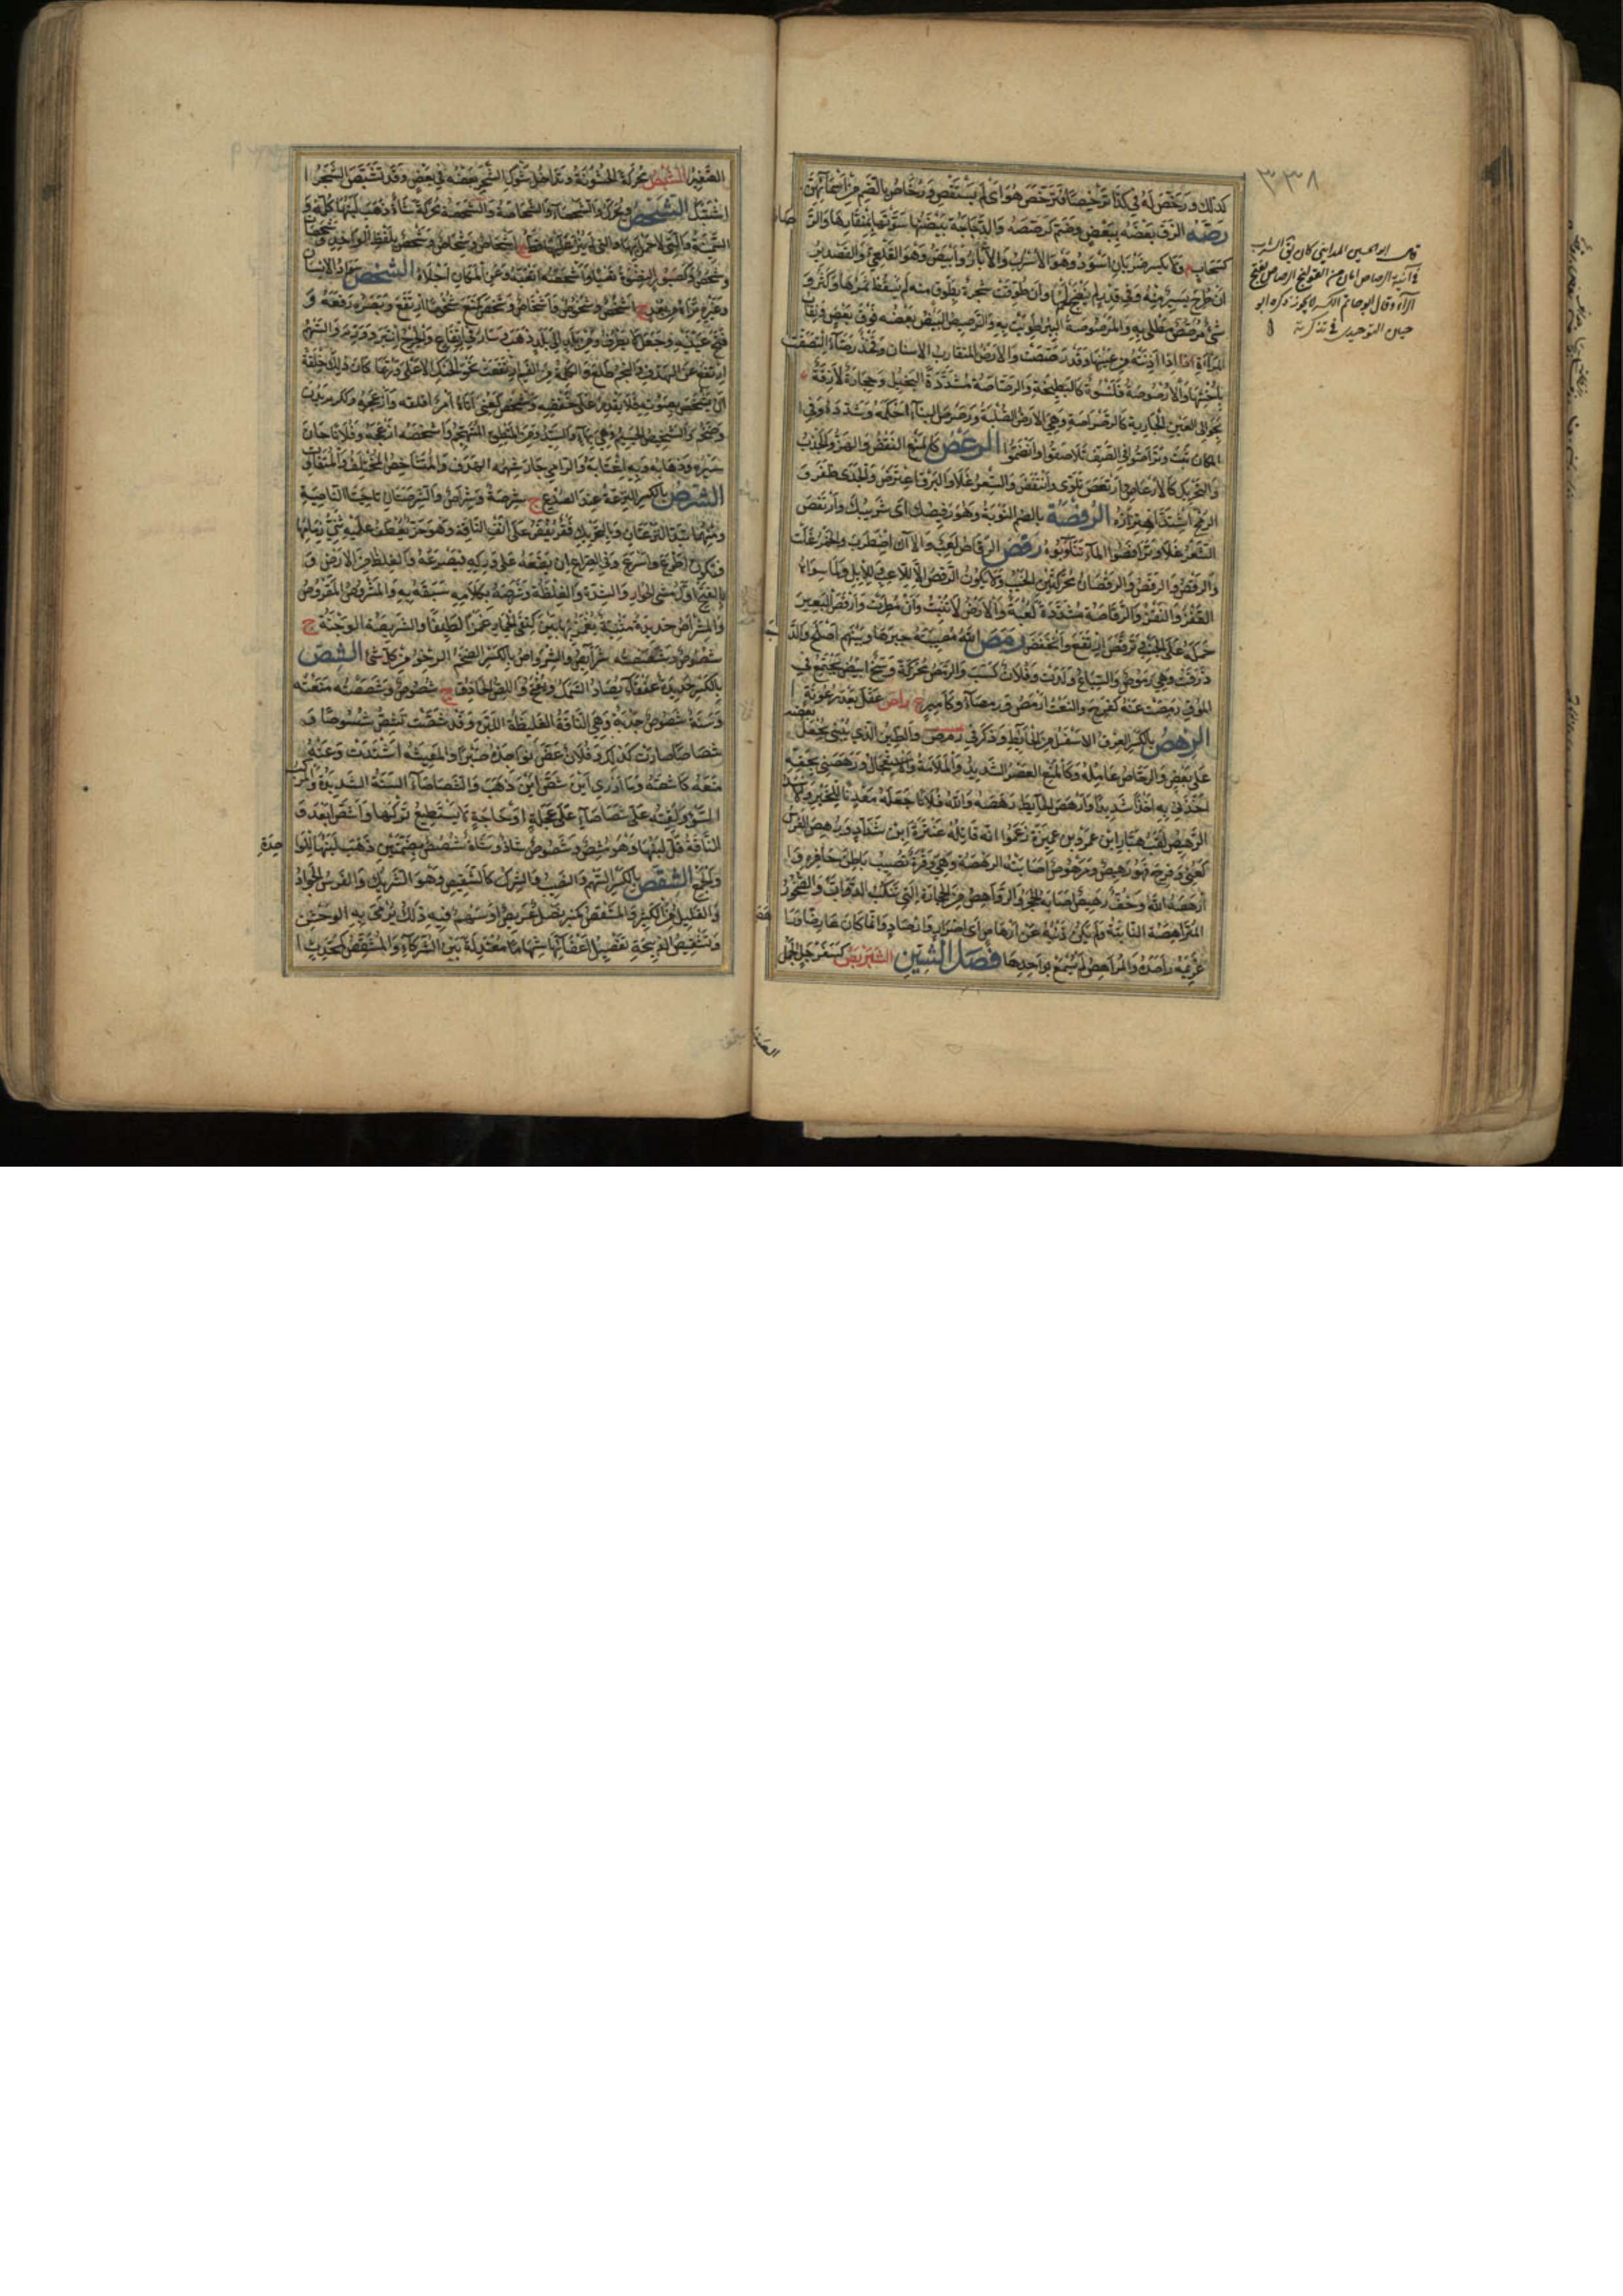 ٣٣٨
كذلك ورخص له في كذا ترخيصا فترخص هو اى لم يستقص ورخاص بالضم من اسمائهن
رصه الزق بعضه ببعض وضم كرصصه والدجاجة بيضتها سوتها بمنقارها والر
صاص
كسحاب م ولا يكسر ضربان اسود وهو الاسرب والأبار وابيض وهو القلعى والقصدير
ان طرح يسير منه في قدر لم ينضج لحمها وان طوقت شجرة بطوق منه لم يسقط ثمرها وكثر و
شئ مرصص مطلى به والمرصوصة البئر طويت به والرصيص البيض بعضه فوق بعض ونقاب
المرأة اذا ادنته من عينيها وقد رصصت والارص المتقارب الاسنان وفخذ رصاء التصقت
باختها والارصوصة قلنسوة كالبطيخة والرصاصة مشددة البخيل وحجارة لازقة
بحوالى العين الجارية كالرصراصة وهى الارض الصلبة ورصرص البناء احكمه وشدده وفى ا
لمكان ثبت وتراصوا فى الصف تلاصقوا وانضموا الرعص كالمنع النفض والهز والجذب
والتحريك كالارعاص وارتعص تلوى وانتفض والسعر غلا والبرق اعترض والجدى طفر و
الرمح اشتد اهتزازه الرفصة بالضم النوبة وهو رفيصك اى شريبك وارتفص
السعر غلا وترافصوا الماء تناوبوه رقص الرقاص لعب والآل اضطرب والخمر غلت
والرقص والرقص والرقصان محركتين الخبب ولا يكون الرقص الا للاعب وللابل ولما سواه
القفز والنقز والرقاصة مشددة لعبة والارض لا تنبت وان مطرت وارقص البعير
حمله على الخبب وترقص ارتفع وانخفض رمص الله مصيبته جبرها وبينهم اصلح والد
جاجة
ذرقت وهى رموص والسباع ولدت وفلان كسب والرمص محركة وسخ ابيض يجتمع فى
الموق رمصت عينه كفرح والنعت ارمص ورمصاء وكأمير ع راص عقل بعد رعونة
الرهص بالكسر العرق الاسفل من الحائط وذكر فى رمص والطين الذى يبنى يجعل بعضه
على بعض والرهاص عامله وكالمنع العصر الشديد والملامة والاستعجال ورهصنى بحقه
اخذنى به اخذا شديدا وارهص الحايط رهصه والله فلانا جعله معدنا للخير والاسد
الرهيص لقب هبار ابن عمرو بن عميرة زعموا انه قاتل عنترة ابن شداد ورهص الفرس
كعنى وفرح فهو رهيص ومرهوص اصابته الرهصة وهى وقرة تصيب باطن حافره و
ارهصه الله وخف رهيص اصابه الحجر والرواهص من الحجارة التى تنكب الدواب والصخور
المتراهصة الثابتة ولم يكن ذنبه عن ارهاص اى اصرار وارصاد وانما كان عارضا
غريمه راصده والمراهص لم يسمع بواحدها فصل الشين الشبربص كسفرجل الجمل
قال ابو الحسين المدايني كان يقال الشرب
فى آنية الرصاص امان من القولنج الرصاص بفتح
الراء وقال ابو حاتم الكسر لا يجوز ذكره ابو
حيان التوحيدى فى تذكرته
الصغير
الصغير الشبص محركة الخشونة وتداخل شوك الشجر بعضه فى بعض وقد تشبص الشجر ا
شتبك الشحص ويحرك والشحصاء والشحاصة والشحصة محركة شاة ذهب لبنها كله و
السمينة والتى لا حمل بها والتى لم ينز عليها قط ج اشحاص وشحاص وشحص بلفظ الواحد وشحصات
وشحص وكصبور النضوة تعبا واشحصه اتعبه وعن المكان اجلاه الشخص سواد الانسان
وغيره تراه من بعد ج اشخص وشخوص واشخاص وشخص كمنع شخوصا ارتفع وبصره رفعه و
فتح عينيه وجعل لا يطرف ومن بلد الى بلد ذهب وسار فى ارتفاع والجرح انتبر وورم والسهم
ارتفع عن الهدف والنجم طلع والكلمة من الفم ارتفعت نحو الحنك الاعلى وربما كان ذلك خلقة
ان يشخص بصوته فلا يقدر على خفضه وشخص به كعنى اتاه امر اقلقه وازعجه وككرم بدن
وضخم والشخيص الجسيم وهى بهاء والسيد ومن المنطق المتجهم واشخصه ازعجه وفلان حان
سيره وذهابه وبه اغتابه والرامى جاز سهمه الهدف والمتشاخص المختلف والمتفاوت
الشرص بالكسر النزعة عند الصدغ ج شرصة وشراص والشرصتان ناحيتا الناصية
ومنهما تبدا النزعتان وبالتحريك فقر يفقر على انف الناقة وهو حز يعطف عليه ثنى زمامها
فتكون اطوع واسرع وفى الصراع ان يضعه على وركه فيصرعه والغلظ من الارض و
بالفتح اول مشى الحوار والشدة والغلظة وشرصه بكلامه سبقه به والمشروص المقروص
والمشراص حديدة مثنية يغمز بها بين كتفى الحمار غمزا لطيفا والشريصة الوجنة ج
شصوص وشصصته شرايص والشرواص بالكسر الضخم الرخو من كل شئ الشص
بالكسر حديدة عقفاء يصاد بها السمك ويفتح واللص الحاذق ج شصوص وشصصته منعته
وسنة شصوص جدبة وهى الناقة الغليظة اللبن وقد شصت تشص شصوصا و
شصاصا صارت كذلك وفلان عض نواجذه صبرا والمعيشة اشتدت وعنه
منعه كاشصه وما ادرى اين شص اين ذهب والشصاصاء السنة الشديدة والمركب
السوء ولقيته على شصاصاء على عجلة او حاجة لا يستطيع تركها واشص ابعد و
الناقة قل لبنها وهو شص وشصوص شاذ وشاة شصص بضمتين ذهب لبنها للوا
حدة
والجمع الشقص بالكسر السهم والنصيب والشرك كالشقيص وهو الشريك والفرس الجواد
والقليل من الكثير والمشقص كمنبر نصل عريض او سهم فيه ذلك يرمى به الوحش
وتشقيص الذبيحة تفصيل اعضائها سهاما معتدلة بين الشركاء والمشقص كمحدث ا
لقصاب